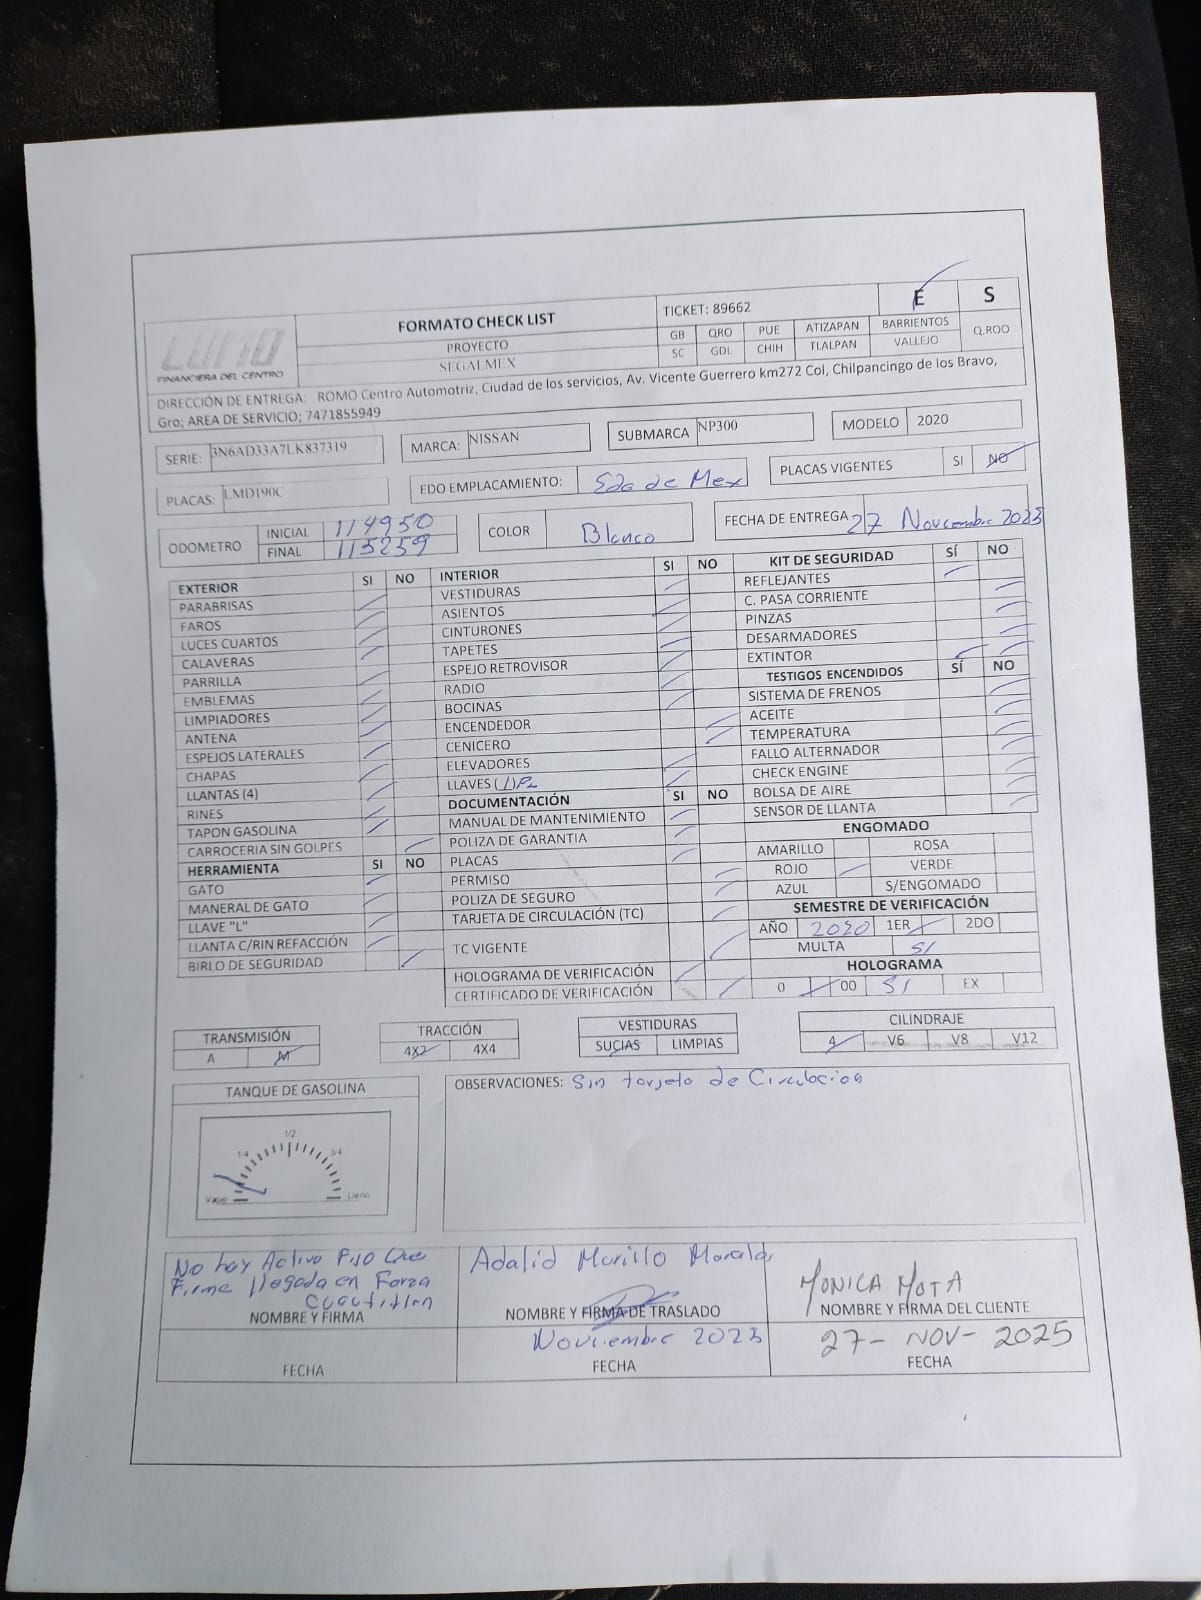 LUMO
FINANCIERA DEL CENTRO
FORMATO CHECK LIST
PROYECTO
SEGALMEX
TICKET: 89662 E S
GB QRO PUE ATIZAPAN BARRIENTOS Q.ROO
SC GDL CHIH TLALPAN VALLEJO
DIRECCIÓN DE ENTREGA: ROMO Centro Automotriz, Ciudad de los servicios, Av. Vicente Guerrero km272 Col, Chilpancingo de los Bravo,
Gro; AREA DE SERVICIO; 7471855949
SERIE: 3N6AD33A7LK837319 MARCA: NISSAN SUBMARCA NP300 MODELO 2020
PLACAS: LMD190C EDO EMPLACAMIENTO: Edo de Mex PLACAS VIGENTES SI NO
ODOMETRO INICIAL 114950 COLOR Blanco FECHA DE ENTREGA 27 Novcembre 2025
FINAL 115259
EXTERIOR SI NO
PARABRISAS
FAROS
LUCES CUARTOS
CALAVERAS
PARRILLA
EMBLEMAS
LIMPIADORES
ANTENA
ESPEJOS LATERALES
CHAPAS
LLANTAS (4)
RINES
TAPON GASOLINA
CARROCERIA SIN GOLPES
HERRAMIENTA SI NO
GATO
MANERAL DE GATO
LLAVE "L"
LLANTA C/RIN REFACCIÓN
BIRLO DE SEGURIDAD
INTERIOR SI NO
VESTIDURAS
ASIENTOS
CINTURONES
TAPETES
ESPEJO RETROVISOR
RADIO
BOCINAS
ENCENDEDOR
CENICERO
ELEVADORES
LLAVES (1)
DOCUMENTACIÓN SI NO
MANUAL DE MANTENIMIENTO
POLIZA DE GARANTIA
PLACAS
PERMISO
POLIZA DE SEGURO
TARJETA DE CIRCULACIÓN (TC)
TC VIGENTE
HOLOGRAMA DE VERIFICACIÓN
CERTIFICADO DE VERIFICACIÓN
KIT DE SEGURIDAD SÍ NO
REFLEJANTES
C. PASA CORRIENTE
PINZAS
DESARMADORES
EXTINTOR
TESTIGOS ENCENDIDOS SÍ NO
SISTEMA DE FRENOS
ACEITE
TEMPERATURA
FALLO ALTERNADOR
CHECK ENGINE
BOLSA DE AIRE
SENSOR DE LLANTA
ENGOMADO
AMARILLO ROSA
ROJO VERDE
AZUL S/ENGOMADO
SEMESTRE DE VERIFICACIÓN
AÑO 2020 1ER 2DO
MULTA SI
HOLOGRAMA
0 00 SI EX
TRANSMISIÓN
A M
TRACCIÓN
4X2 4X4
VESTIDURAS
SUCIAS LIMPIAS
CILINDRAJE
4 V6 V8 V12
TANQUE DE GASOLINA
1/4 1/2 3/4
Vacio Lleno
OBSERVACIONES: Sin tarjeta de Circulacion
No hay Activo Fijo Que
Firme llegada en Forza
Cuautitlan
NOMBRE Y FIRMA
FECHA
Adalid Murillo Morales
NOMBRE Y FIRMA DE TRASLADO
Noviembre 2025
FECHA
MONICA MOTA
NOMBRE Y FIRMA DEL CLIENTE
27-NOV-2025
FECHA